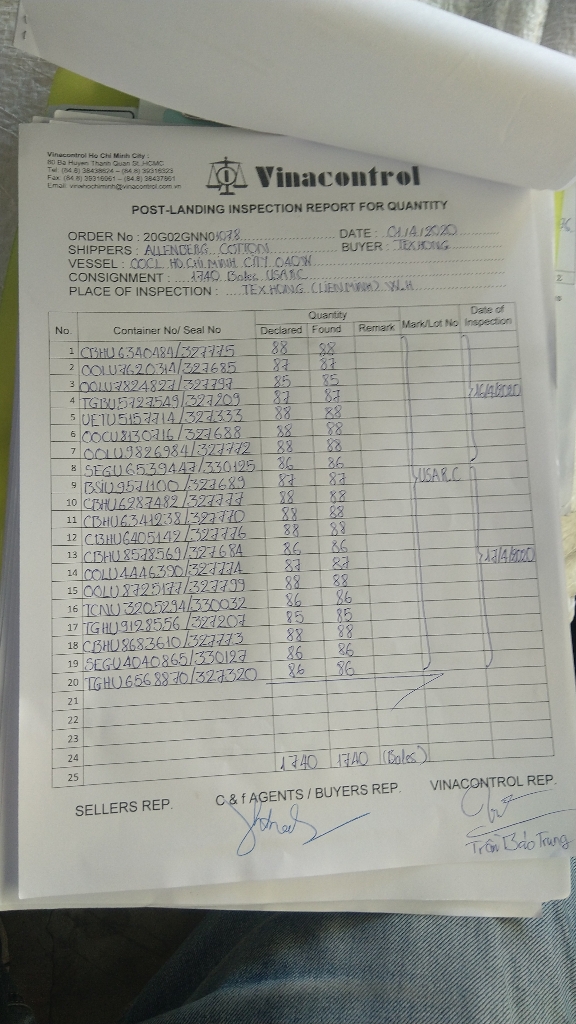 Vinacontrol Ho Chi Minh City :
80 Ba Huyen Thanh Quan St.,HCMC
Tel: (84.8) 38438624 – (84.8) 39316323
Fax: (84.8) 39316961 – (84.8) 38437861
Email: vinahochiminh@vinacontrol.com.vn
Vinacontrol
POST-LANDING INSPECTION REPORT FOR QUANTITY
ORDER No : 20G02GNN01078 DATE : 01/4/2020
SHIPPERS : ALLENBERG COTTON BUYER : TEXHONG
VESSEL : OOCL HO CHI MINH CITY 040W
CONSIGNMENT : 1740 Bales USARC
PLACE OF INSPECTION : TEXHONG (LIENMINH) W.H
No. Container No/ Seal No Quantity Declared Found Remark Mark/Lot No Date of Inspection
1 CBHU6340484/327775 88 88
2 OOLU7620314/327685 87 87
3 OOLU7824827/327797 85 85
4 TGBU5727549/327209 87 87 16/4/2020
5 UETU5157714/327333 88 88
6 COCU8130716/327688 88 88
7 OOLU9826984/327772 88 88
8 SEGU6539447/330125 86 86
9 BSIU9571100/327689 87 87 USARC
10 CBHU6287482/327777 88 88
11 CBHU6341238/327770 88 88
12 CBHU6405142/327776 88 88
13 CBHU8578569/327684 86 86 17/4/2020
14 OOLU4446390/327774 87 87
15 OOLU8725177/327799 88 88
16 TCNU3205294/330032 86 86
17 TGHU9128556/327207 85 85
18 CBHU8683610/327773 88 88
19 SEGU4040865/330127 86 86
20 TGHU6568870/327320 86 86
21
22
23
24 1740 1740 (Bales)
25
SELLERS REP. C & f AGENTS / BUYERS REP. VINACONTROL REP.
Trần Bảo Trung